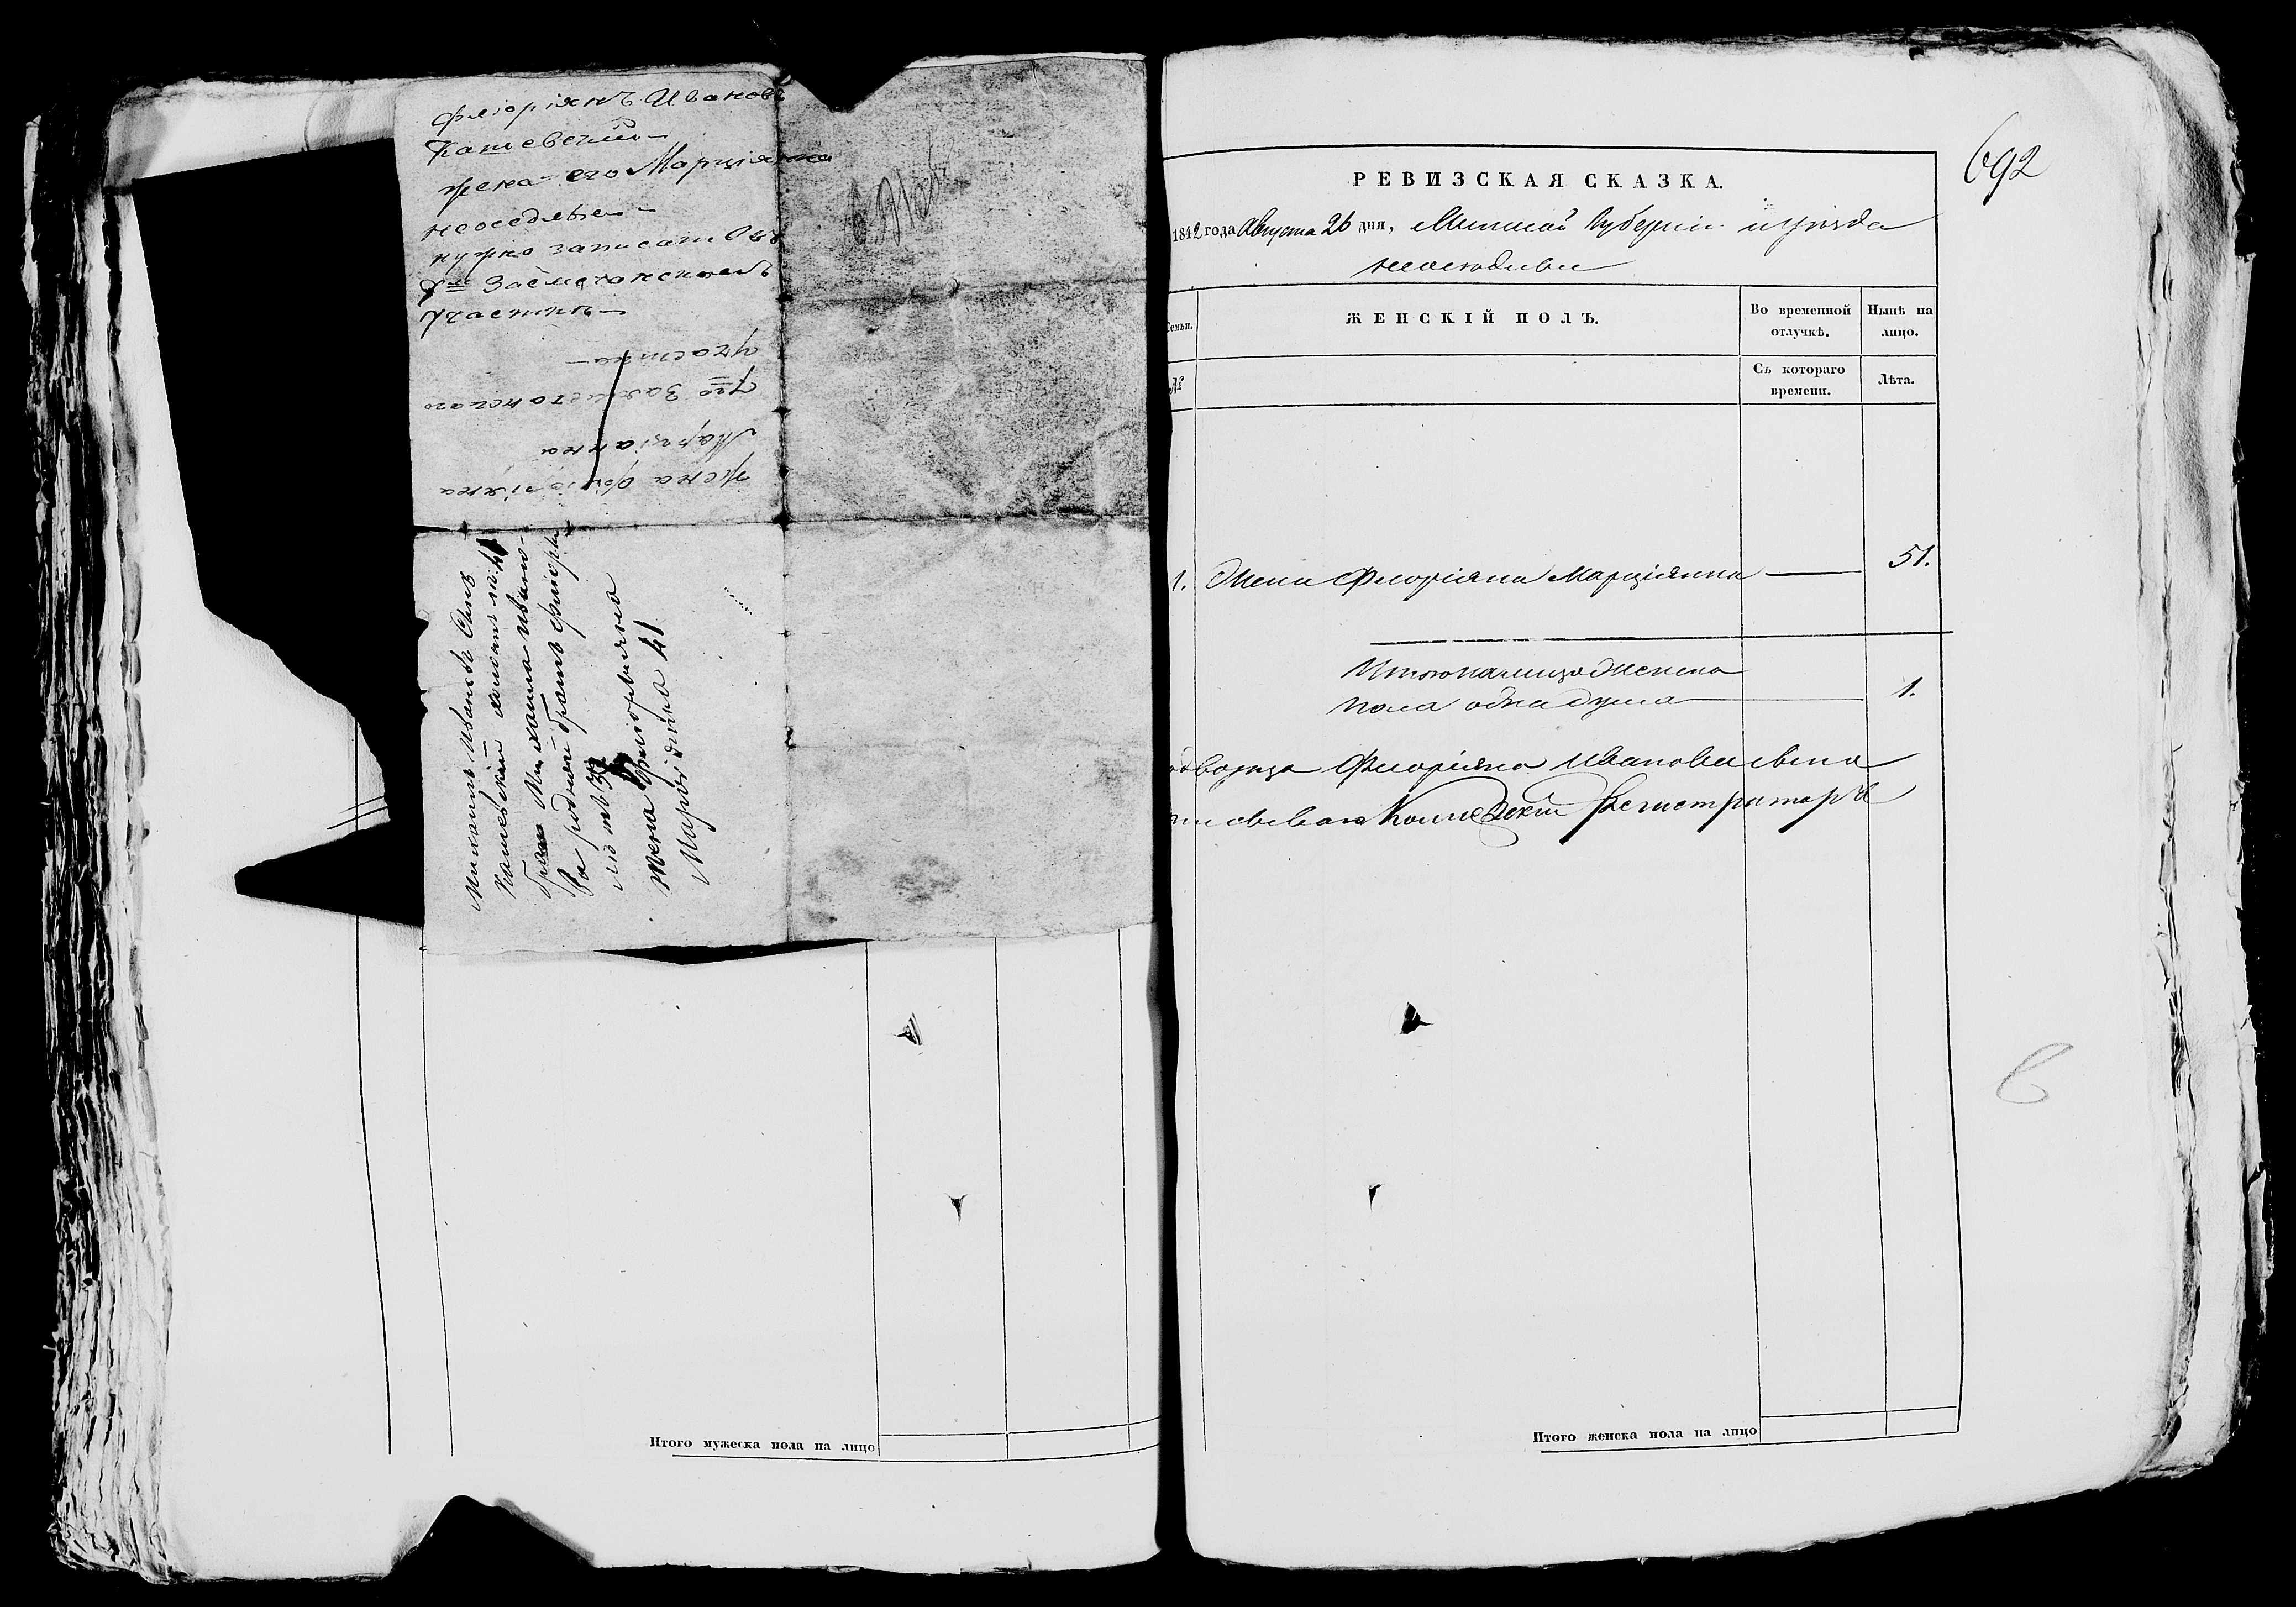 Флюріянъ Ивановъ
Кашевскій
жена его Марціянна
неоседлые
нужно записать Въ
7м Засметанскомъ
участкъ
участка
7го Засметанского
Марціанна
жена Флюріяна
Михаилъ Ивановъ Сынъ
Кашевскій
Михаила Ивано-
ва родней братъ Флюріян
лютъ 3
жена Флюріяна
Марціянна 41
692
РЕВИЗСКАЯ СКАЗКА.
1842 года Августа 26 дня, Минской Губерніи и уѣзда
неоседлые
Семьи.
ЖЕНСКІЙ ПОЛЪ.
Во временной отлучкѣ.
Нынѣ на лицо.
№
Съ котораго времени.
Лѣта.
1. Жена Флоріяна Марціянна 51.
Итого налицо женска
пола одна душа 1.
Флоріяна Иванова сына
Коллежскій Регистраторъ
Итого мужеска пола на лицо
Итого женска пола на лицо